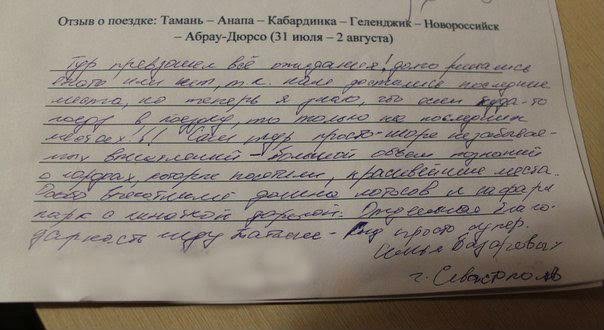 Отзыв о поездке: Тамань – Анапа – Кабардинка – Геленджик – Новороссийск
– Абрау-Дюрсо (31 июля – 2 августа)
Тур превзошел все ожидания! Долго решались
ехать или нет, т.к. нам достались последние
места, но теперь я знаю, что если куда-то
поеду в поездку, то только на последних
местах!!! Сам тур просто – море незабывае-
мых впечатлений – большой объем познаний
о городах, которые посетили, красивейшие места.
впечатлили долина лотосов и сафари
парк с канатной дорогой. Отдельная благо-
дарность гиду Татьяне – гид просто супер.
Семья
г. Севастополь